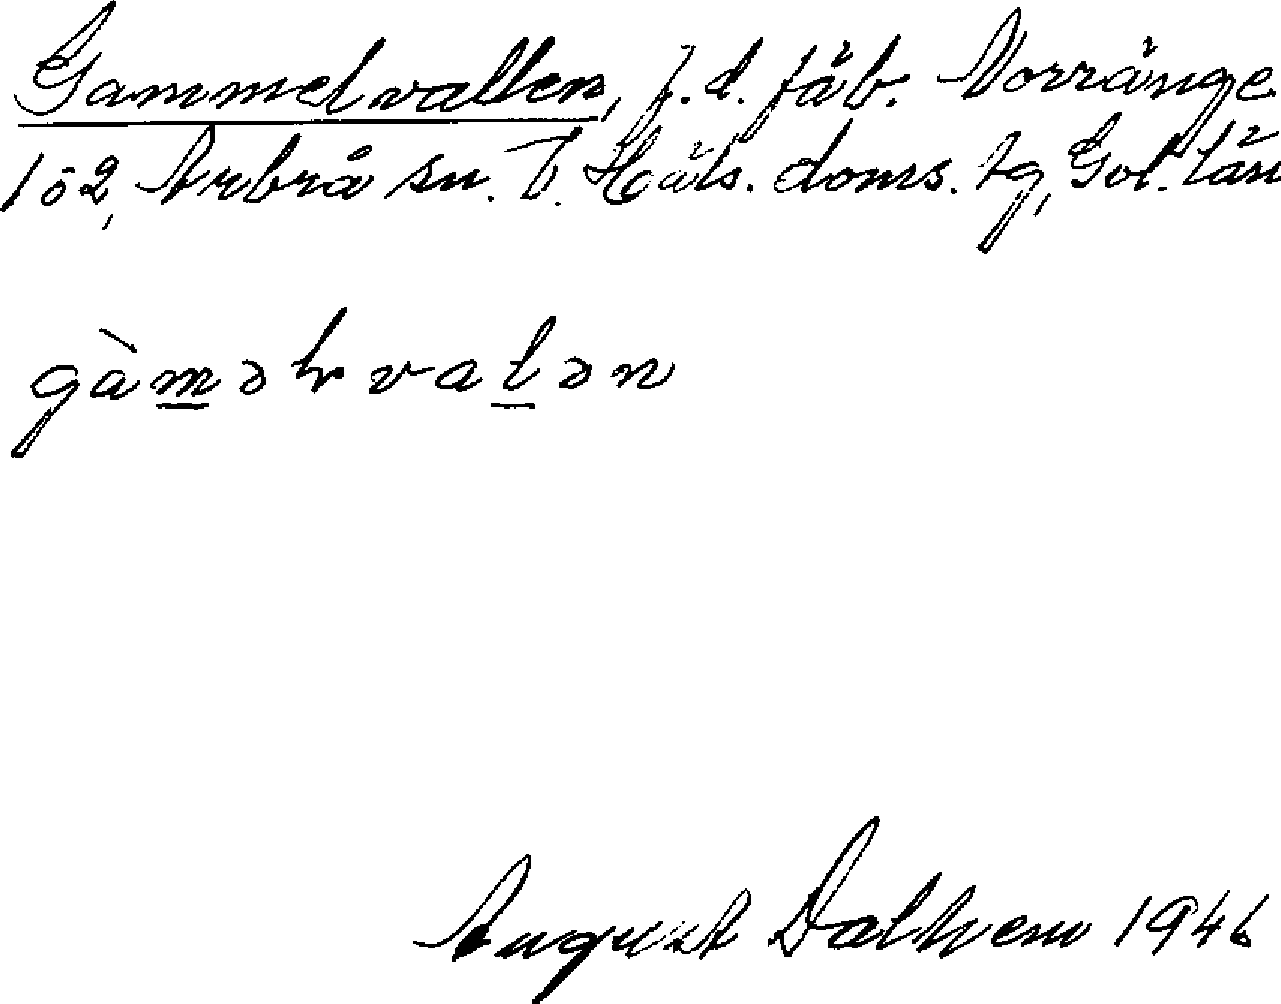 Gammelvallen, f.d. fäb. Norränge
1ö2, Arbrå sn. V. Häls. doms. tg, Gvl. län
gàm̲əɫval̲ən
August Dalhem 1946